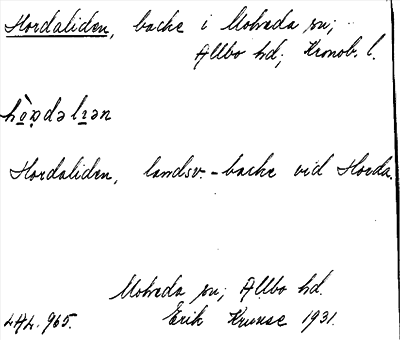 Hordaliden, backe i Moheda sn;
Allbo hd; Kronob. l.
hò̱ṇdəlı̱ən
Hordaliden, landsv.-backe vid Horda.
Moheda sn; Allbo hd.
LAL. 965. Erik Kruuse 1931.